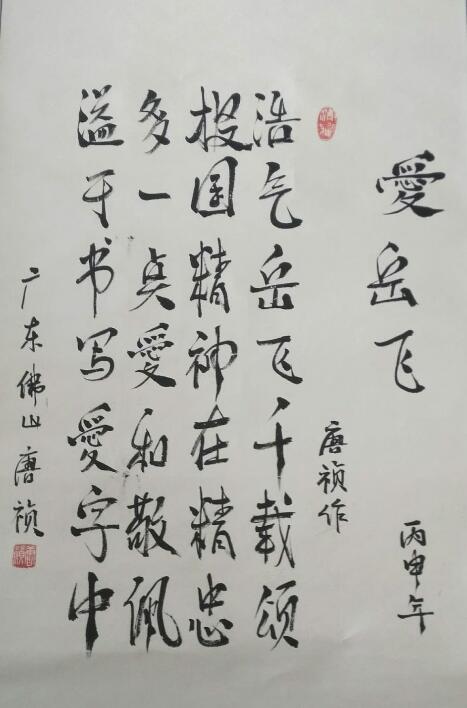 愛岳飞
丙申年
唐祯作
浩气岳飞千载颂
投国精神在精忠
多一点愛和敬佩
溢于书写愛字中
广东佛山唐祯